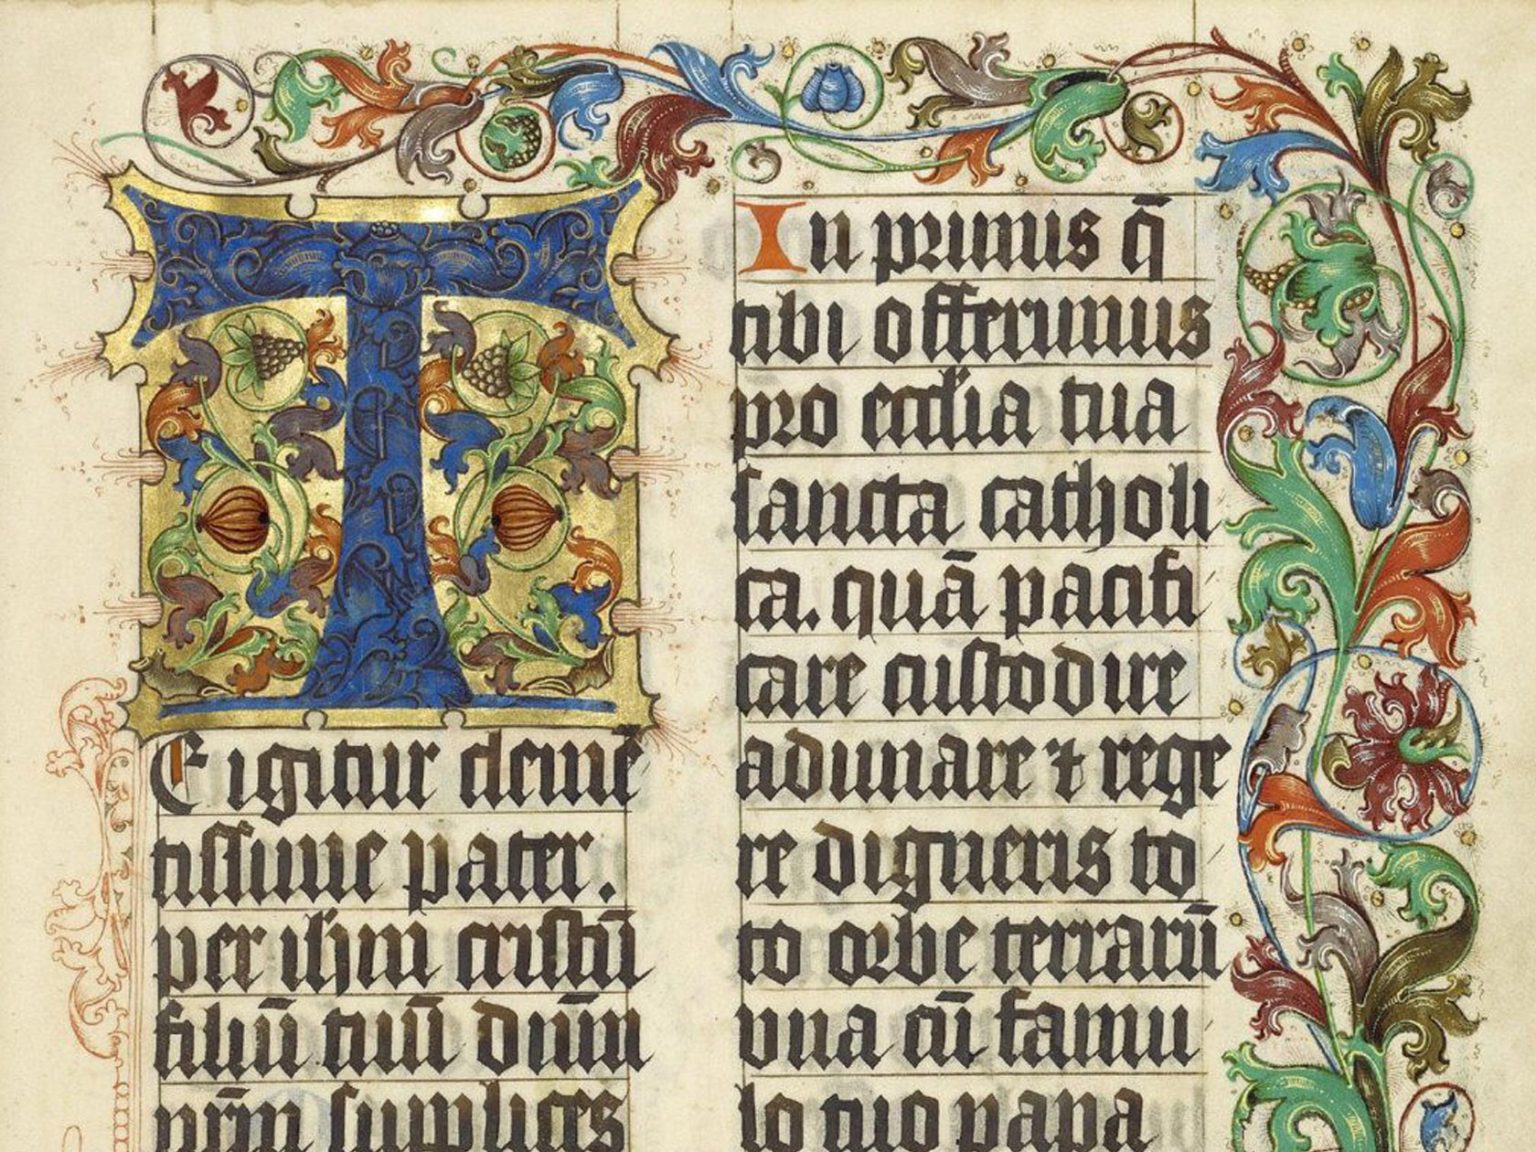 T
E igitur clemē
tissime pater.
per ihm cristū
filiū tuū dnm̄
nrm̄ supplices
In primis q̄
tibi offerimus
pro eccl'ia tua
sancta catholi
ca. quā pacifi
care custodire
adunare ⁊ rege
re digneris to
to orbe terrarū
vna cū famu
lo tuo papa